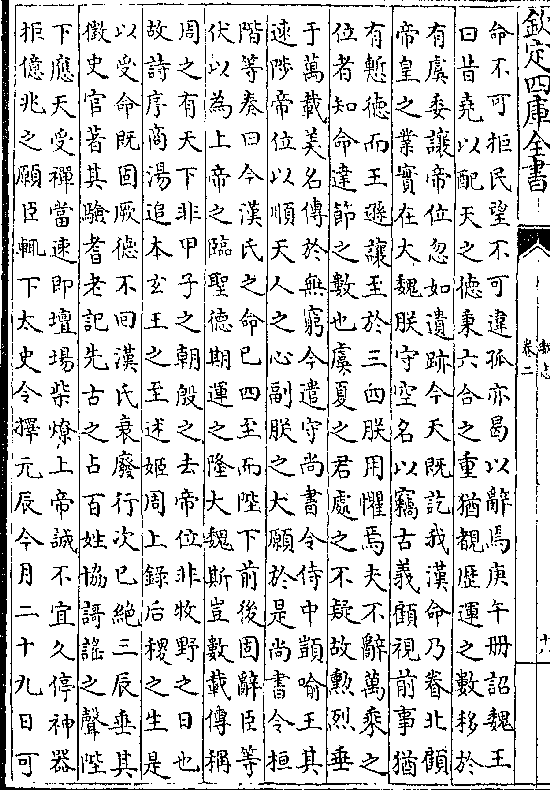 欽定四庫全書
魏志
卷二
命不可拒民望不可違孤亦曷以辭焉庚午册詔魏王
曰昔堯以配天之德秉六合之重猶覩歷運之數移於
有虞委讓帝位忽如遺跡今天既訖我漢命乃眷北顧
帝皇之業實在大魏朕守空名以竊古義顧視前事猶
有慙德而王遜讓至於三四朕用懼焉夫不辭萬乗之
位者知命達節之數也虞夏之君處之不疑故勲烈垂
于萬載美名傳於無窮今遣守尚書令侍中顗喻王其
速陟帝位以順天人之心副朕之大願於是尚書令桓
階等奏曰今漢氏之命已四至而陛下前後固辭臣等
伏以為上帝之臨聖德期運之隆大魏斯豈數載傳稱
周之有天下非甲子之朝殷之去帝位非牧野之日也
故詩序商湯追本玄王之至述姬周上錄后稷之生是
以受命既固厥德不回漢氏衰廢行次已絶三辰垂其
徵史官著其驗耆老記先古之占百姓協謌謠之聲陛
下應天受禪當速即壇場柴燎上帝誠不宜久停神器
拒億兆之願臣輒下太史令擇元辰今月二十九日可